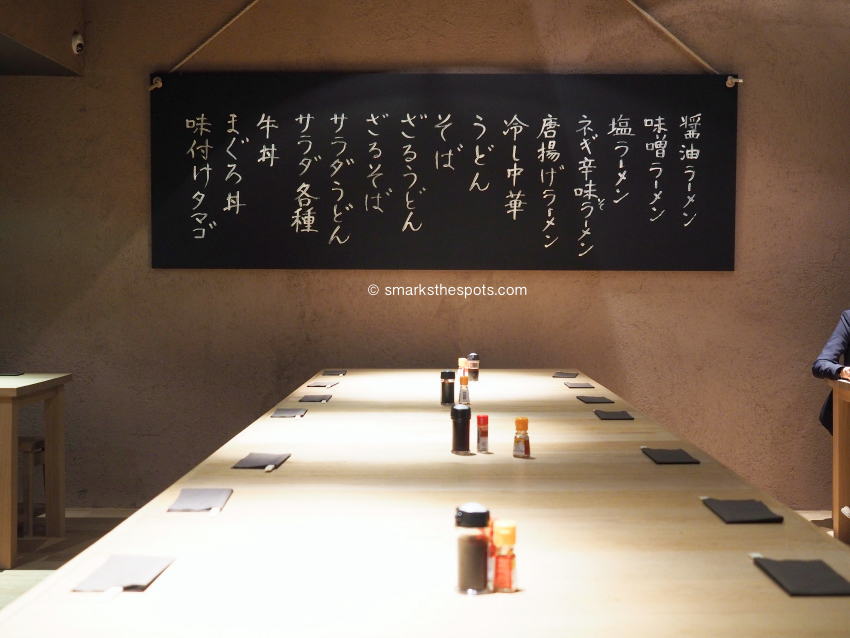 醤油ラーメン
味噌ラーメン
塩ラーメン
ネギ辛味そラーメン
唐揚げラーメン
冷し中華
うどん
そば
ざるうどん
ざるそば
サラダうどん
サラダ各種
牛丼
まぐろ丼
味付けタマゴ
© smarksthespots.com